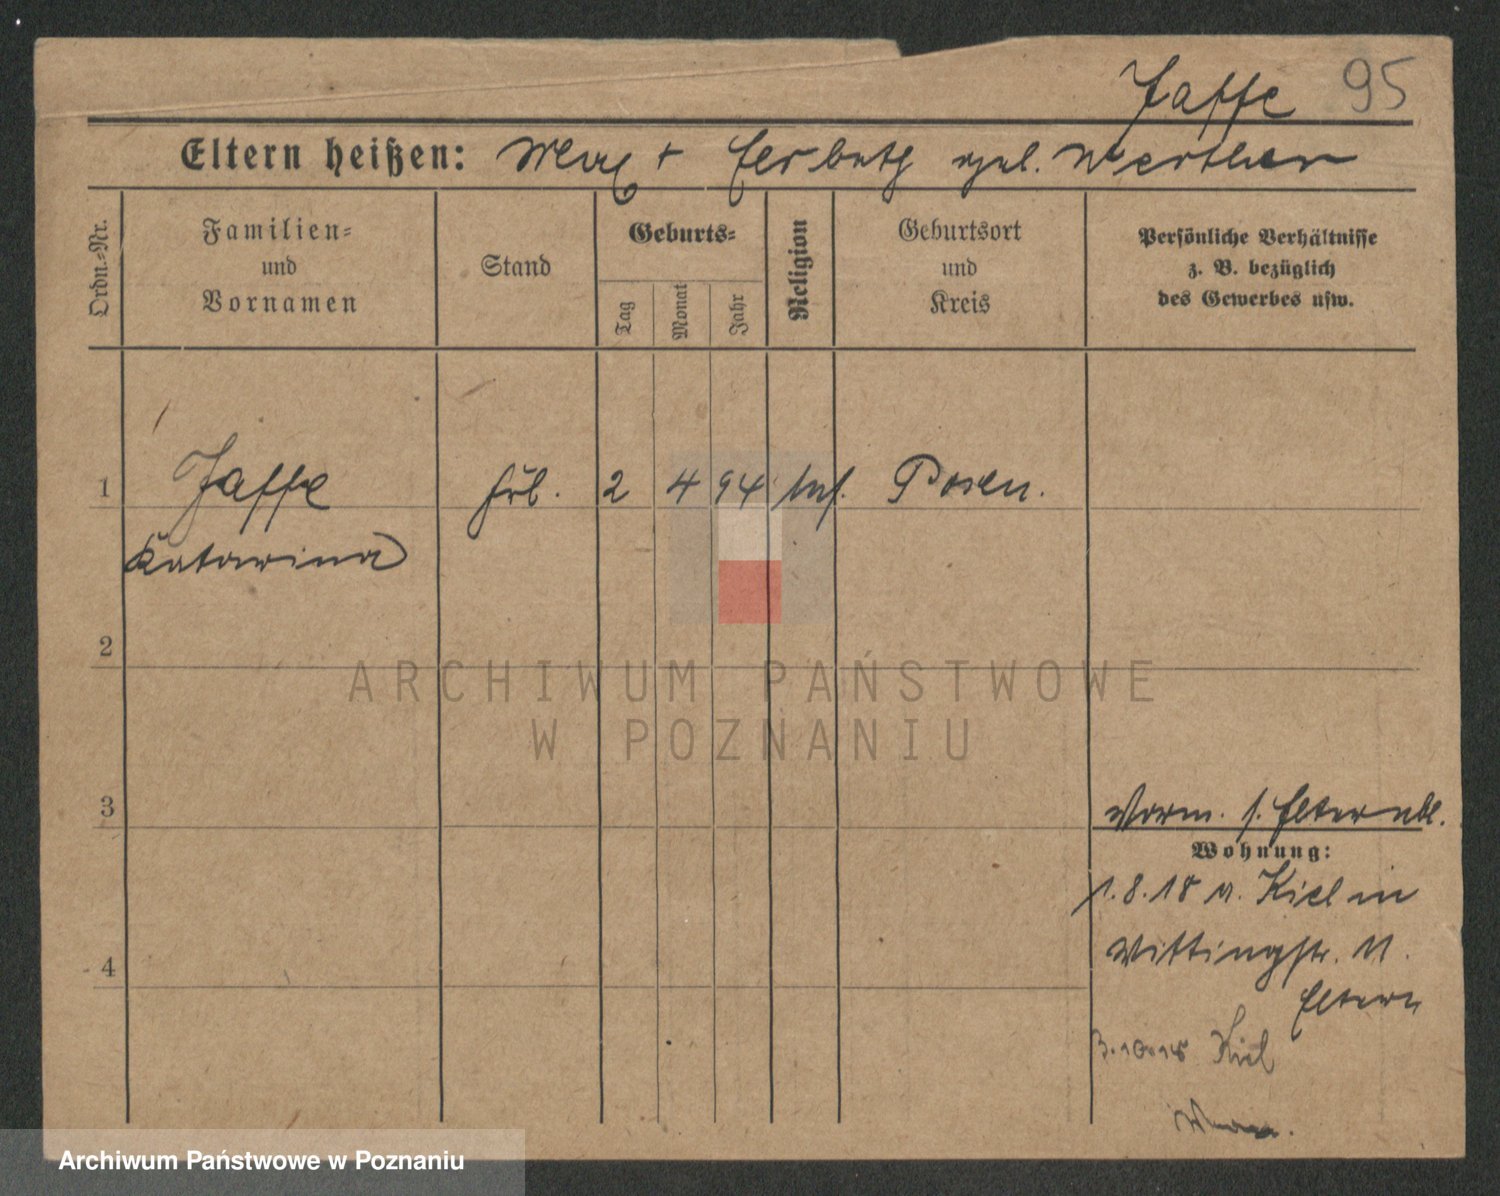 Jaffe 95
Eltern heißen: Max + Elsbeth geb. Werther
Ordn.-Nr.
Familien- und Vornamen
Stand
Geburts-
Tag
Monat
Jahr
Religion
Geburtsort und Kreis
Persönliche Verhältnisse
z. B. bezüglich
des Gewerbes usw.
1 Jaffe frl. 2 4 94 Posen.
Katarina
2
ARCHIWUM PAŃSTWOWE
W POZNANIU
3
Vorm. s. Elternbl.
Wohnung:
1.8.18 v. Kiel in
Wittingstr. 11.
4
Eltern
3.10.18 Kiel
Archiwum Państwowe w Poznaniu